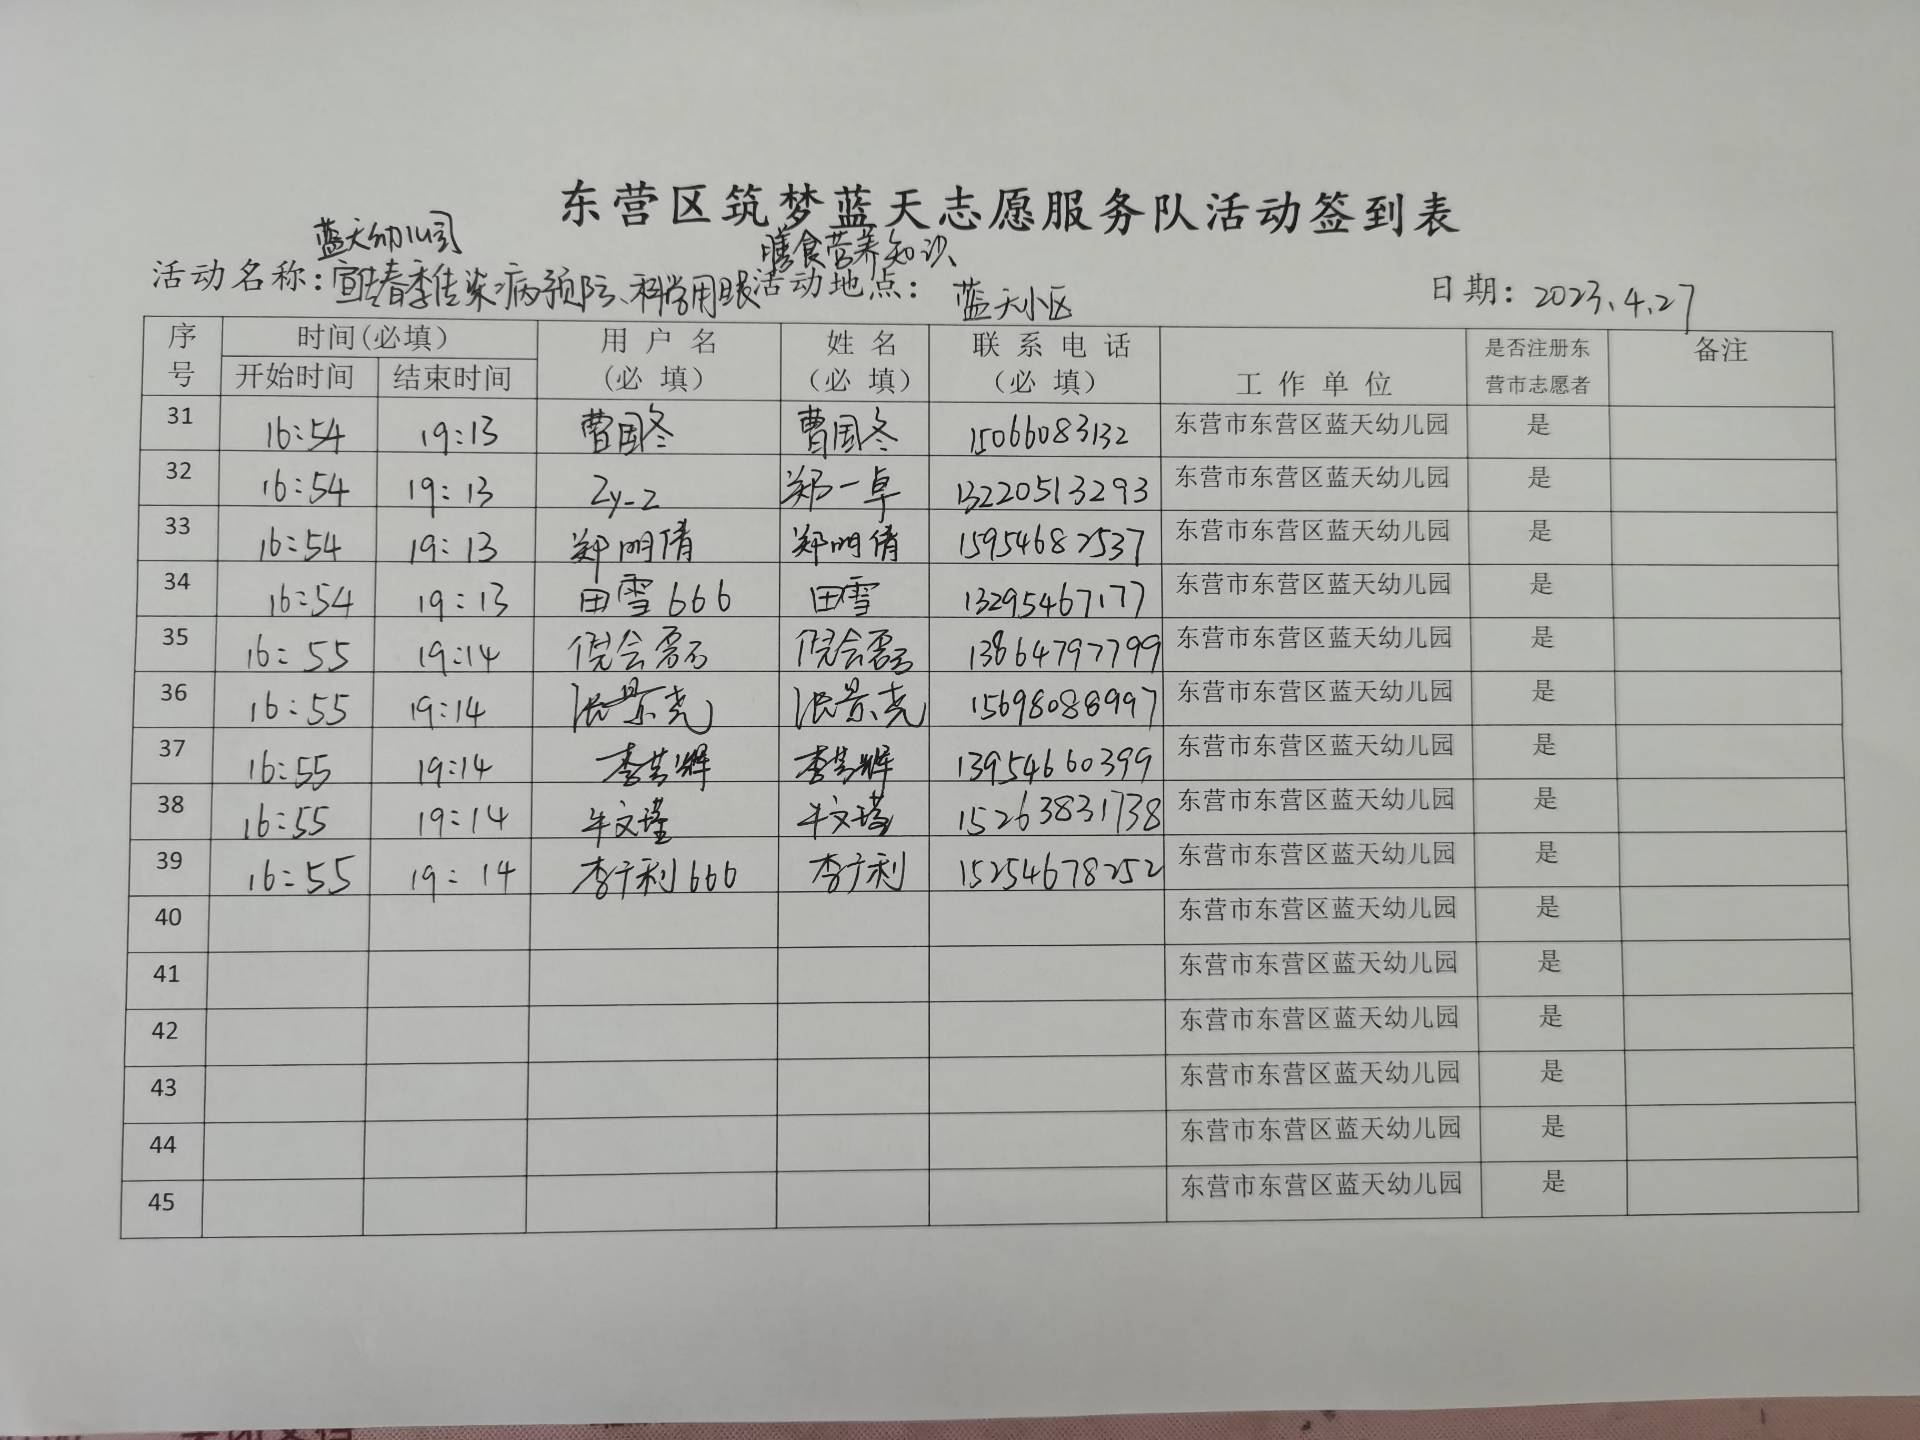 东营区筑梦蓝天志愿服务队活动签到表
蓝天幼儿园 膳食营养知识
活动名称：宣传春季传染病预防、科学用眼 活动地点：蓝天小区 日期：2023.4.27
序号 时间(必填) 用户名(必填) 姓名(必填) 联系电话(必填) 工作单位 是否注册东营市志愿者 备注
开始时间 结束时间
31 16:54 19:13 曹国冬 曹国冬 15066083132 东营市东营区蓝天幼儿园 是
32 16:54 19:13 Zy-z 郑一卓 13220513293 东营市东营区蓝天幼儿园 是
33 16:54 19:13 郑明倩 郑明倩 15954682537 东营市东营区蓝天幼儿园 是
34 16:54 19:13 田雪666 田雪 13295467177 东营市东营区蓝天幼儿园 是
35 16:55 19:14 倪会 倪会 13864797799 东营市东营区蓝天幼儿园 是
36 16:55 19:14 景尧 景尧 15698088997 东营市东营区蓝天幼儿园 是
37 16:55 19:14 李 辉 李 辉 13954660399 东营市东营区蓝天幼儿园 是
38 16:55 19:14 牛文瑾 牛文瑾 15263831738 东营市东营区蓝天幼儿园 是
39 16:55 19:14 李广利666 李广利 15254678252 东营市东营区蓝天幼儿园 是
40 东营市东营区蓝天幼儿园 是
41 东营市东营区蓝天幼儿园 是
42 东营市东营区蓝天幼儿园 是
43 东营市东营区蓝天幼儿园 是
44 东营市东营区蓝天幼儿园 是
45 东营市东营区蓝天幼儿园 是